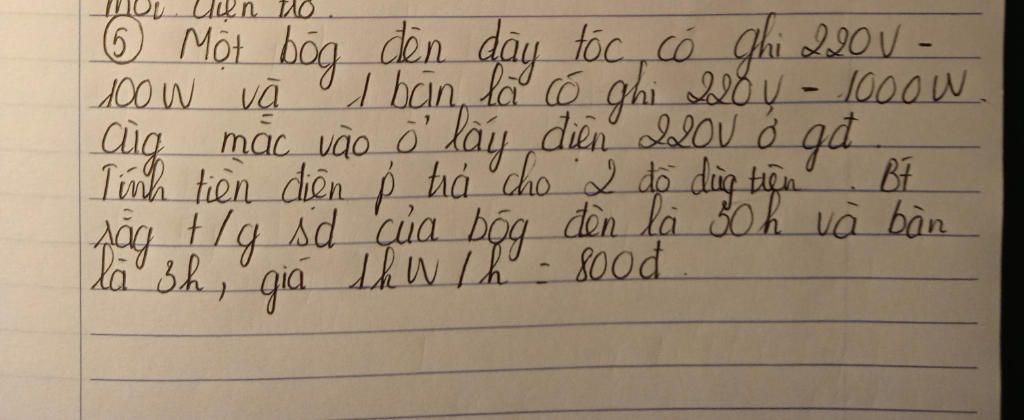 mỗi điện trở.
⑤ Một bóg đèn dây tóc có ghi 220V -
100W và 1 bàn là có ghi 220V - 1000W.
Cùg mắc vào ổ lấy điện 220V ở gđ.
Tính tiền điện p trả cho 2 đồ dùg trên. Bt
rằg t/g sd của bóg đèn là 30h và bàn
là 3h, giá 1kW/h = 800đ.